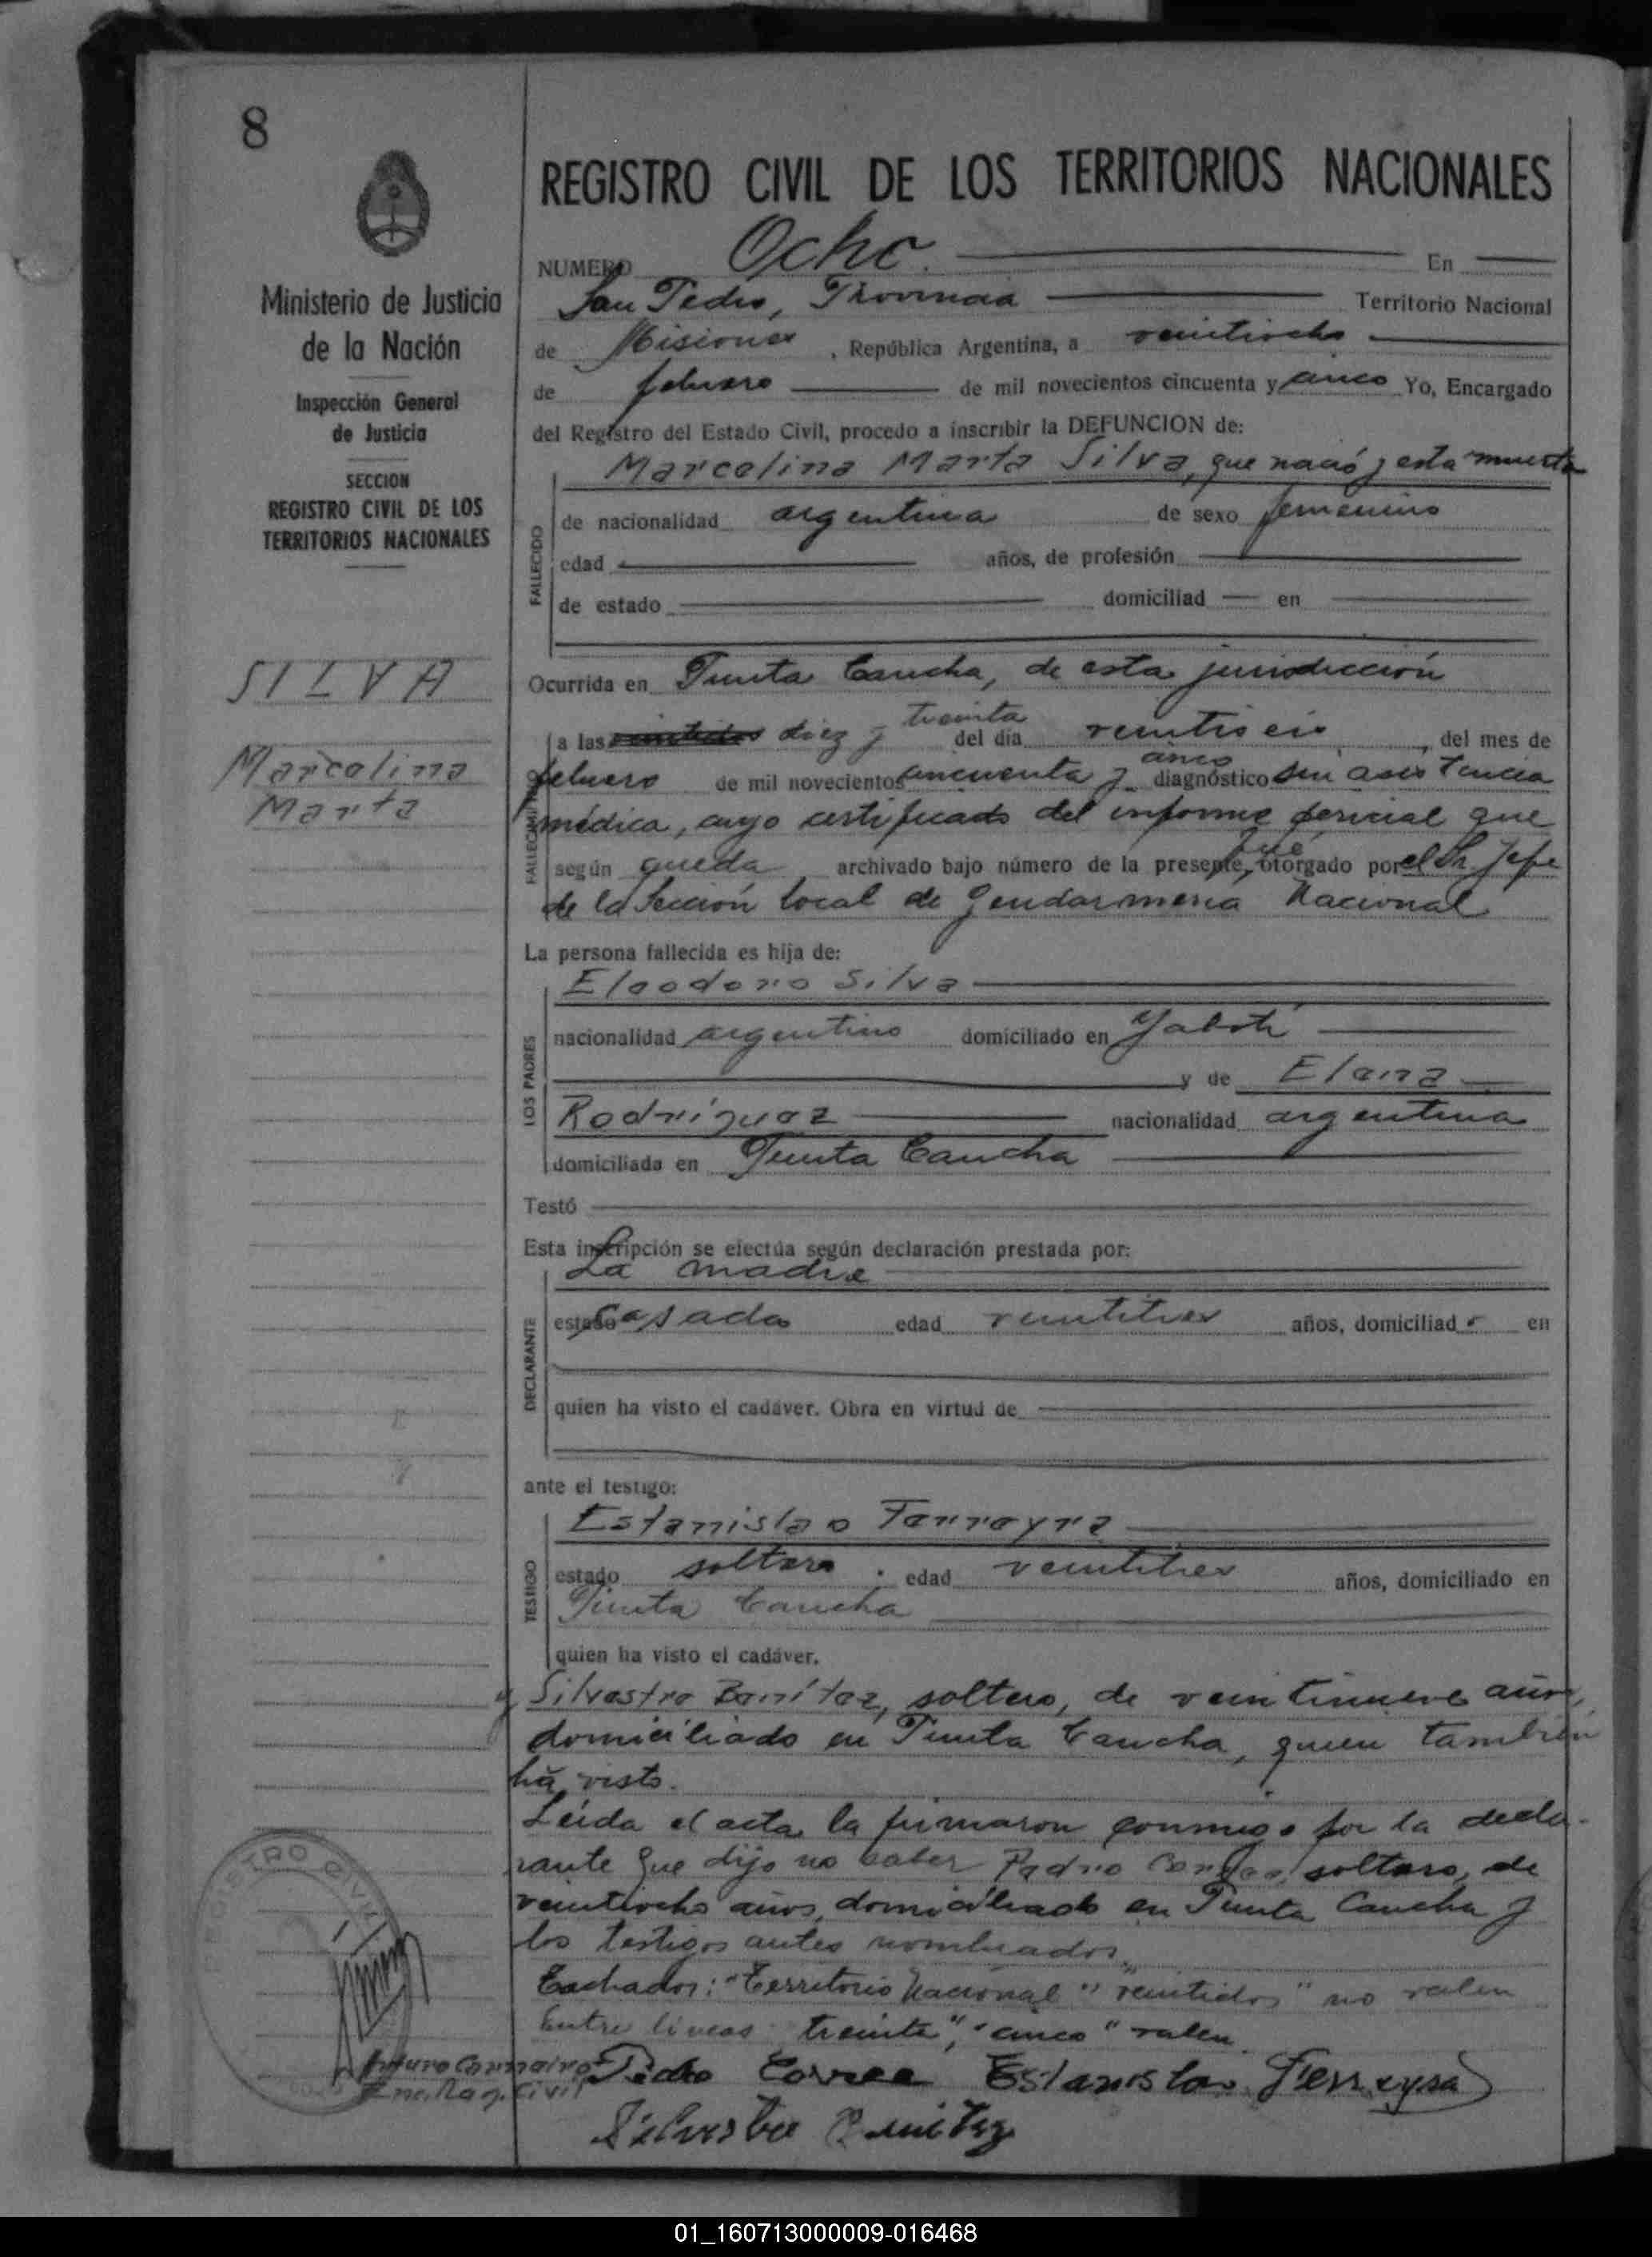 8
REGISTRO CIVIL DE LOS TERRITORIOS NACIONALES
Ministerio de Justicia
de la Nación
Inspección General
de Justicia
SECCION
REGISTRO CIVIL DE LOS
TERRITORIOS NACIONALES
SILVA
Marcelina
Marta
NUMERO Ocho. En
San Pedro, Provincia Territorio Nacional
de Misiones, República Argentina, a veintiocho
de febrero de mil novecientos cincuenta y cinco Yo, Encargado
del Registro del Estado Civil, procedo a inscribir la DEFUNCION de:
Marcelina Marta Silva, que nació y esta muerta
FALLECIDO
de nacionalidad argentina de sexo femenino
edad años, de profesión
de estado domiciliad en
Ocurrida en Punta Cancha, de esta jurisdicción
FALLECIMIENTO
treinta
a las veintidos diez y del día veintiseis, del mes de
cinco
febrero de mil novecientos cincuenta y diagnóstico sin asistencia
médica, cuyo certificado del informe pericial que
fué
según queda archivado bajo número de la presente, otorgado por el Sr. Jefe
de la Sección local de Gendarmeria Nacional
La persona fallecida es hija de:
LOS PADRES
Eleodoro Silva
nacionalidad argentino domiciliado en Yabotí
y de Elena
Rodríguez nacionalidad argentina
domiciliada en Punta Cancha
Testó
Esta inscripción se efectúa según declaración prestada por:
DECLARANTE
La madre
estado casada edad veintitres años, domiciliad en
quien ha visto el cadáver. Obra en virtud de
ante el testigo:
TESTIGO
Estanislao Ferreyra
estado soltero. edad veintitres años, domiciliado en
Punta Cancha
quien ha visto el cadáver.
y Silvestre Benítez, soltero, de veintinueve años,
domiciliado en Punta Cancha, quien también
ha visto.
Leída el acta la firmaron conmigo por la decla-
rante que dijo no saber Pedro Correa, soltero, de
veintiocho años, domiciliado en Punta Cancha y
los testigos antes nombrados.
Tachados: "Territorio Nacional" "veintidos" no valen
Entre lineas: "treinta", "cinco" valen.
Pedro Correa Estanislao Ferreyra
Silvestre Benitez
REGISTRO CIVIL
Enc. Reg. Civil
01_160713000009-016468